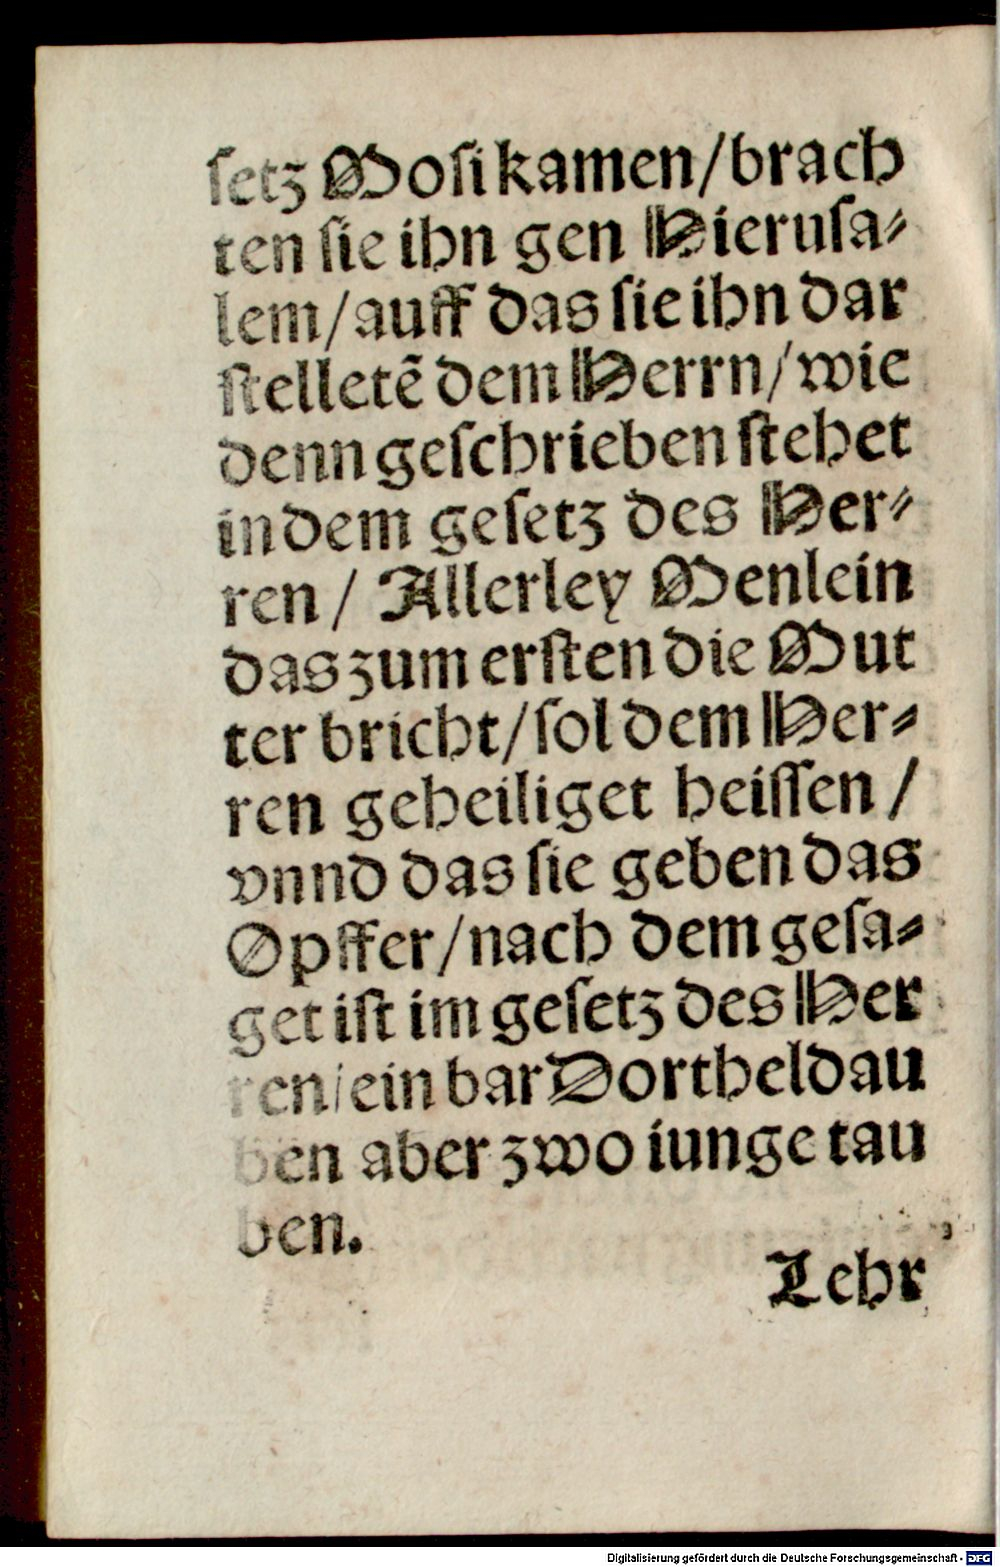 ſetz Moſi kamen/brach
ten ſie ihn gen Hieruſa⸗
lem/auff das ſie ihn dar
ſtelletẽ dem Herrn/wie
denn geſchrieben ſtehet
in dem geſetz des Her⸗
ren/ Allerley Menlein
das zum erſten die Mut
ter bricht/ſol dem Her⸗
ren geheiliget heiſſen /
vnnd das ſie geben das
Opffer/nach dem geſa⸗
get iſt im geſetz des Her
ren/ein bar Dortheldau
ben aber zwo iunge tau
ben.
Lehr
Digitalisierung gefördert durch die Deutsche Forschungsgemeinschaft - DFG